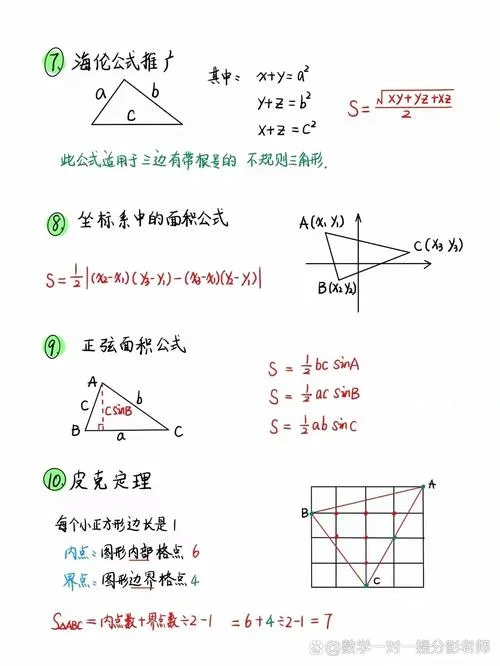 7. 海伦公式推广
a b c
其中: x+y=a²
y+z=b²
x+z=c²
S=√(xy+yz+xz)/2
此公式适用于三边有带根号的 不规则三角形.
8. 坐标系中的面积公式
A(x₁ y₁)
C(x₃ y₃)
B(x₂ y₂)
S=1/2|(x₂-x₁)(y₃-y₁)-(x₃-x₁)(y₂-y₁)|
9. 正弦面积公式
A
c b
csinB
B a C
S=1/2 bc sinA
S=1/2 ac sinB
S=1/2 ab sinC
10. 皮克定理
A
B
C
每个小正方形边长是1
内点:图形内部格点 6
界点:图形边界格点 4
S△ABC=内点数+界点数÷2-1 =6+4÷2-1=7
@数学一对一提分彭老师